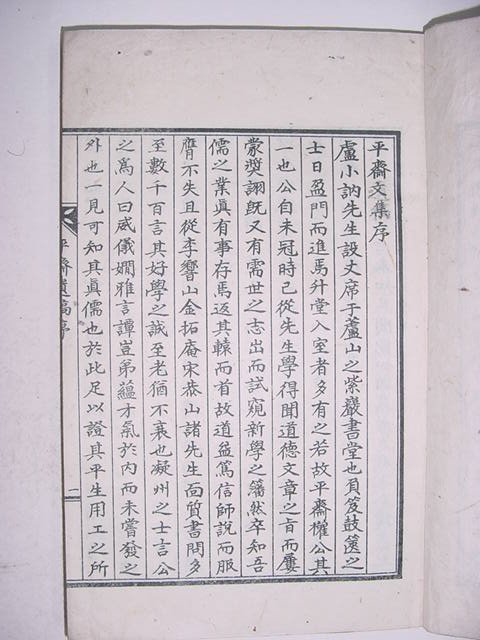 平齋文集序
盧小訥先生設丈席于蘆山之紫巖書堂也負笈鼓篋之
士日盈門而進焉升堂入室者多有之若故平齋權公其
一也公自未冠時已從先生學得聞道德文章之旨而屢
蒙奬詡旣又有需世之志出而試窺新學之籓然卒知吾
儒之業眞有事存焉返其轅而首故道益篤信師說而服
膺不失且從李響山金拓庵宋恭山諸先生面質書問多
至數千百言其好學之誠至老猶不衰也凝州之士言公
之爲人曰威儀嫺雅言譚豈弟蘊才氣於內而未嘗發之
外也一見可知其眞儒也於此足以證其平生用工之所
平齋遺稿序
一